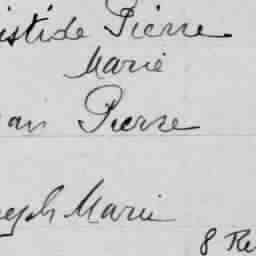 istide Pierre
Marie
an Pierre
eph Marie
8 Re